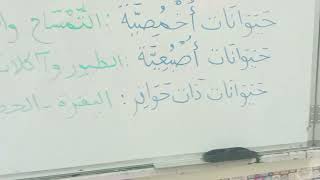 حَيَوَانَات أَخْمَصِيَّة : التِّمْسَاح
حَيَوَانَات أُصْبُعِيَّة : الطيور وآكلات
حَيَوَانَات ذَات حَوَافِر : البقرة - الحصا